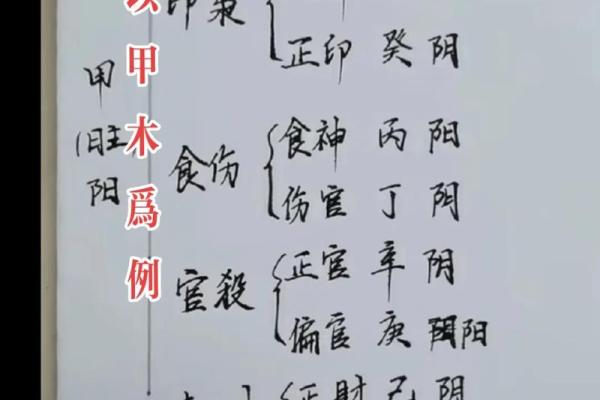 印枭
正印 癸 阴
甲
(旺
阳
以甲木爲例
食伤
食神 丙 阳
伤官 丁 阴
官殺
正官 辛 阴
偏官 庚 阳
正財 己 阴